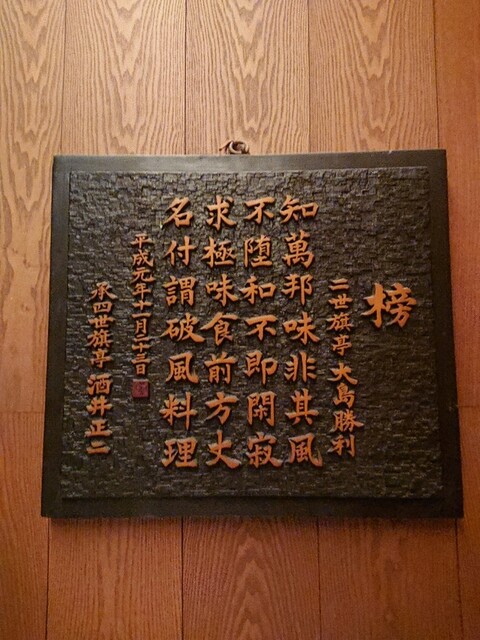 榜
二世旗亭 大島勝利
知萬邦味非其風
不堕和不即閑寂
求極味食前方丈
名付謂破風料理
平成元年十一月二十三日
承四世旗亭 酒井正二